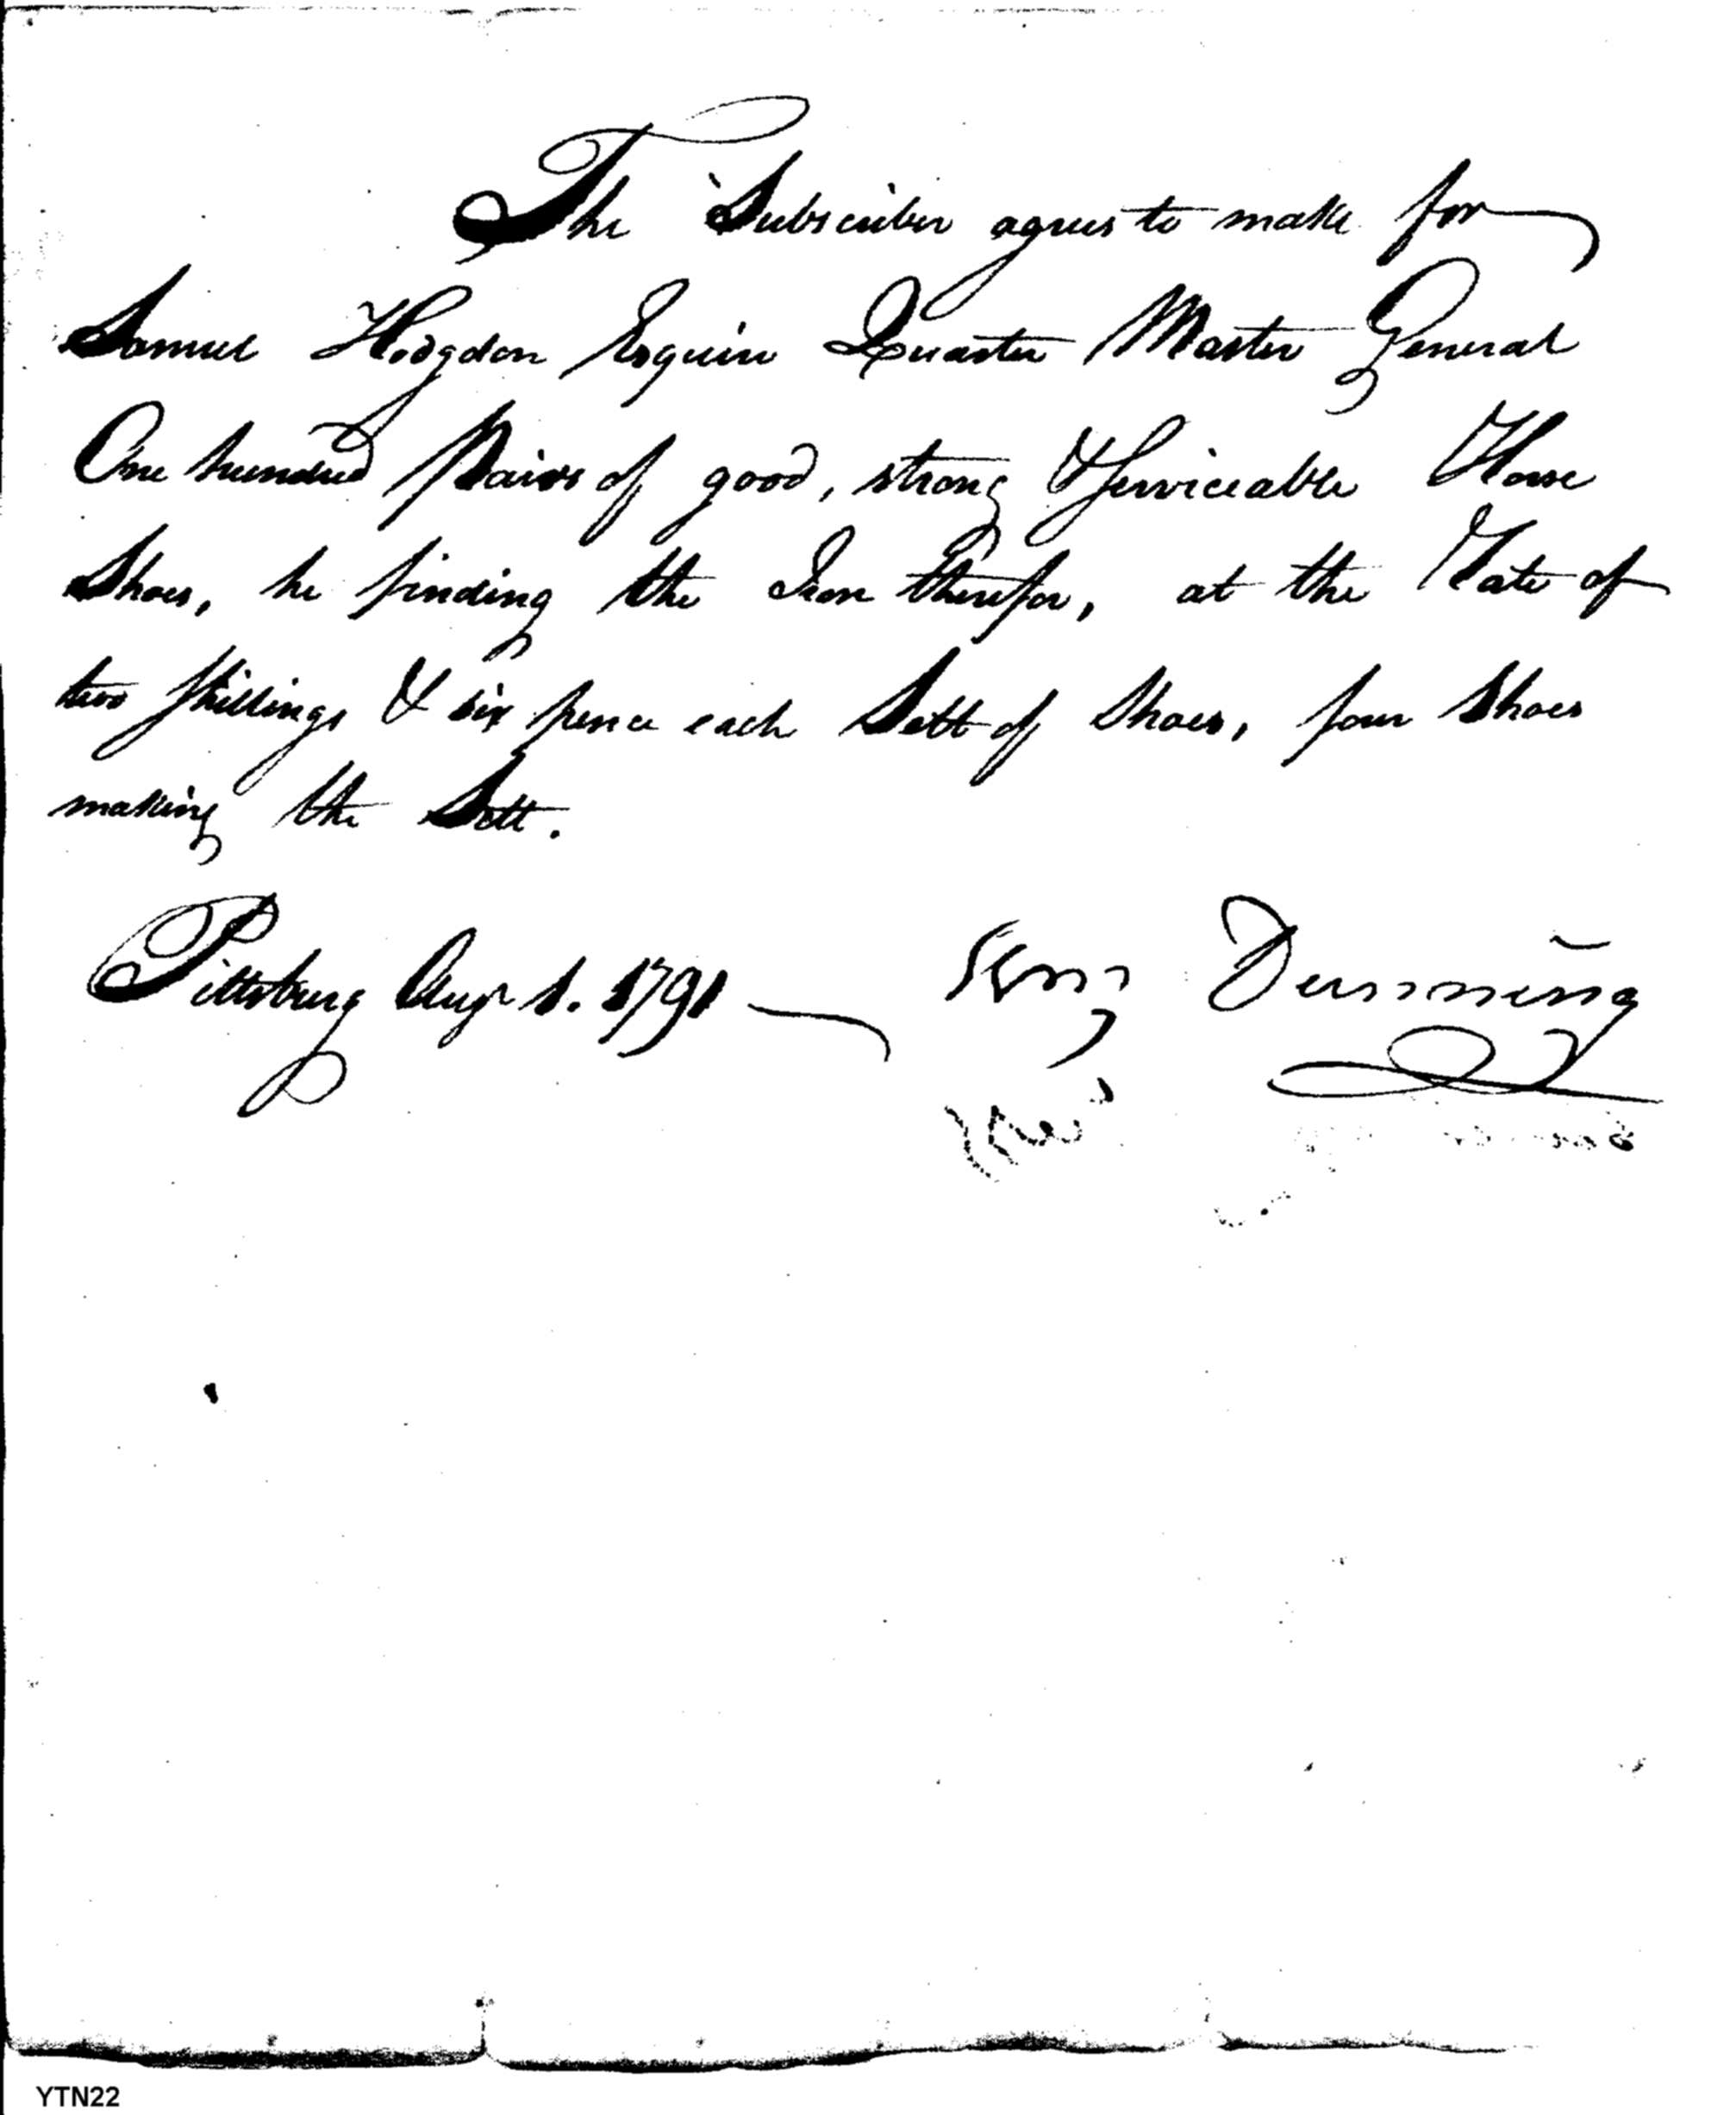 The Subscriber agrees to make for
Samuel Hodgdon Esquire Quarter Master General
One hundred Pairs of good, strong & Serviceable Horse
Shoes, he finding the Iron therefor, at the Rate of
two Shillings & six pence each Sett of Shoes, four Shoes
making the Sett.
Pittsburg Augt 1. 1791 Dunning
YTN22